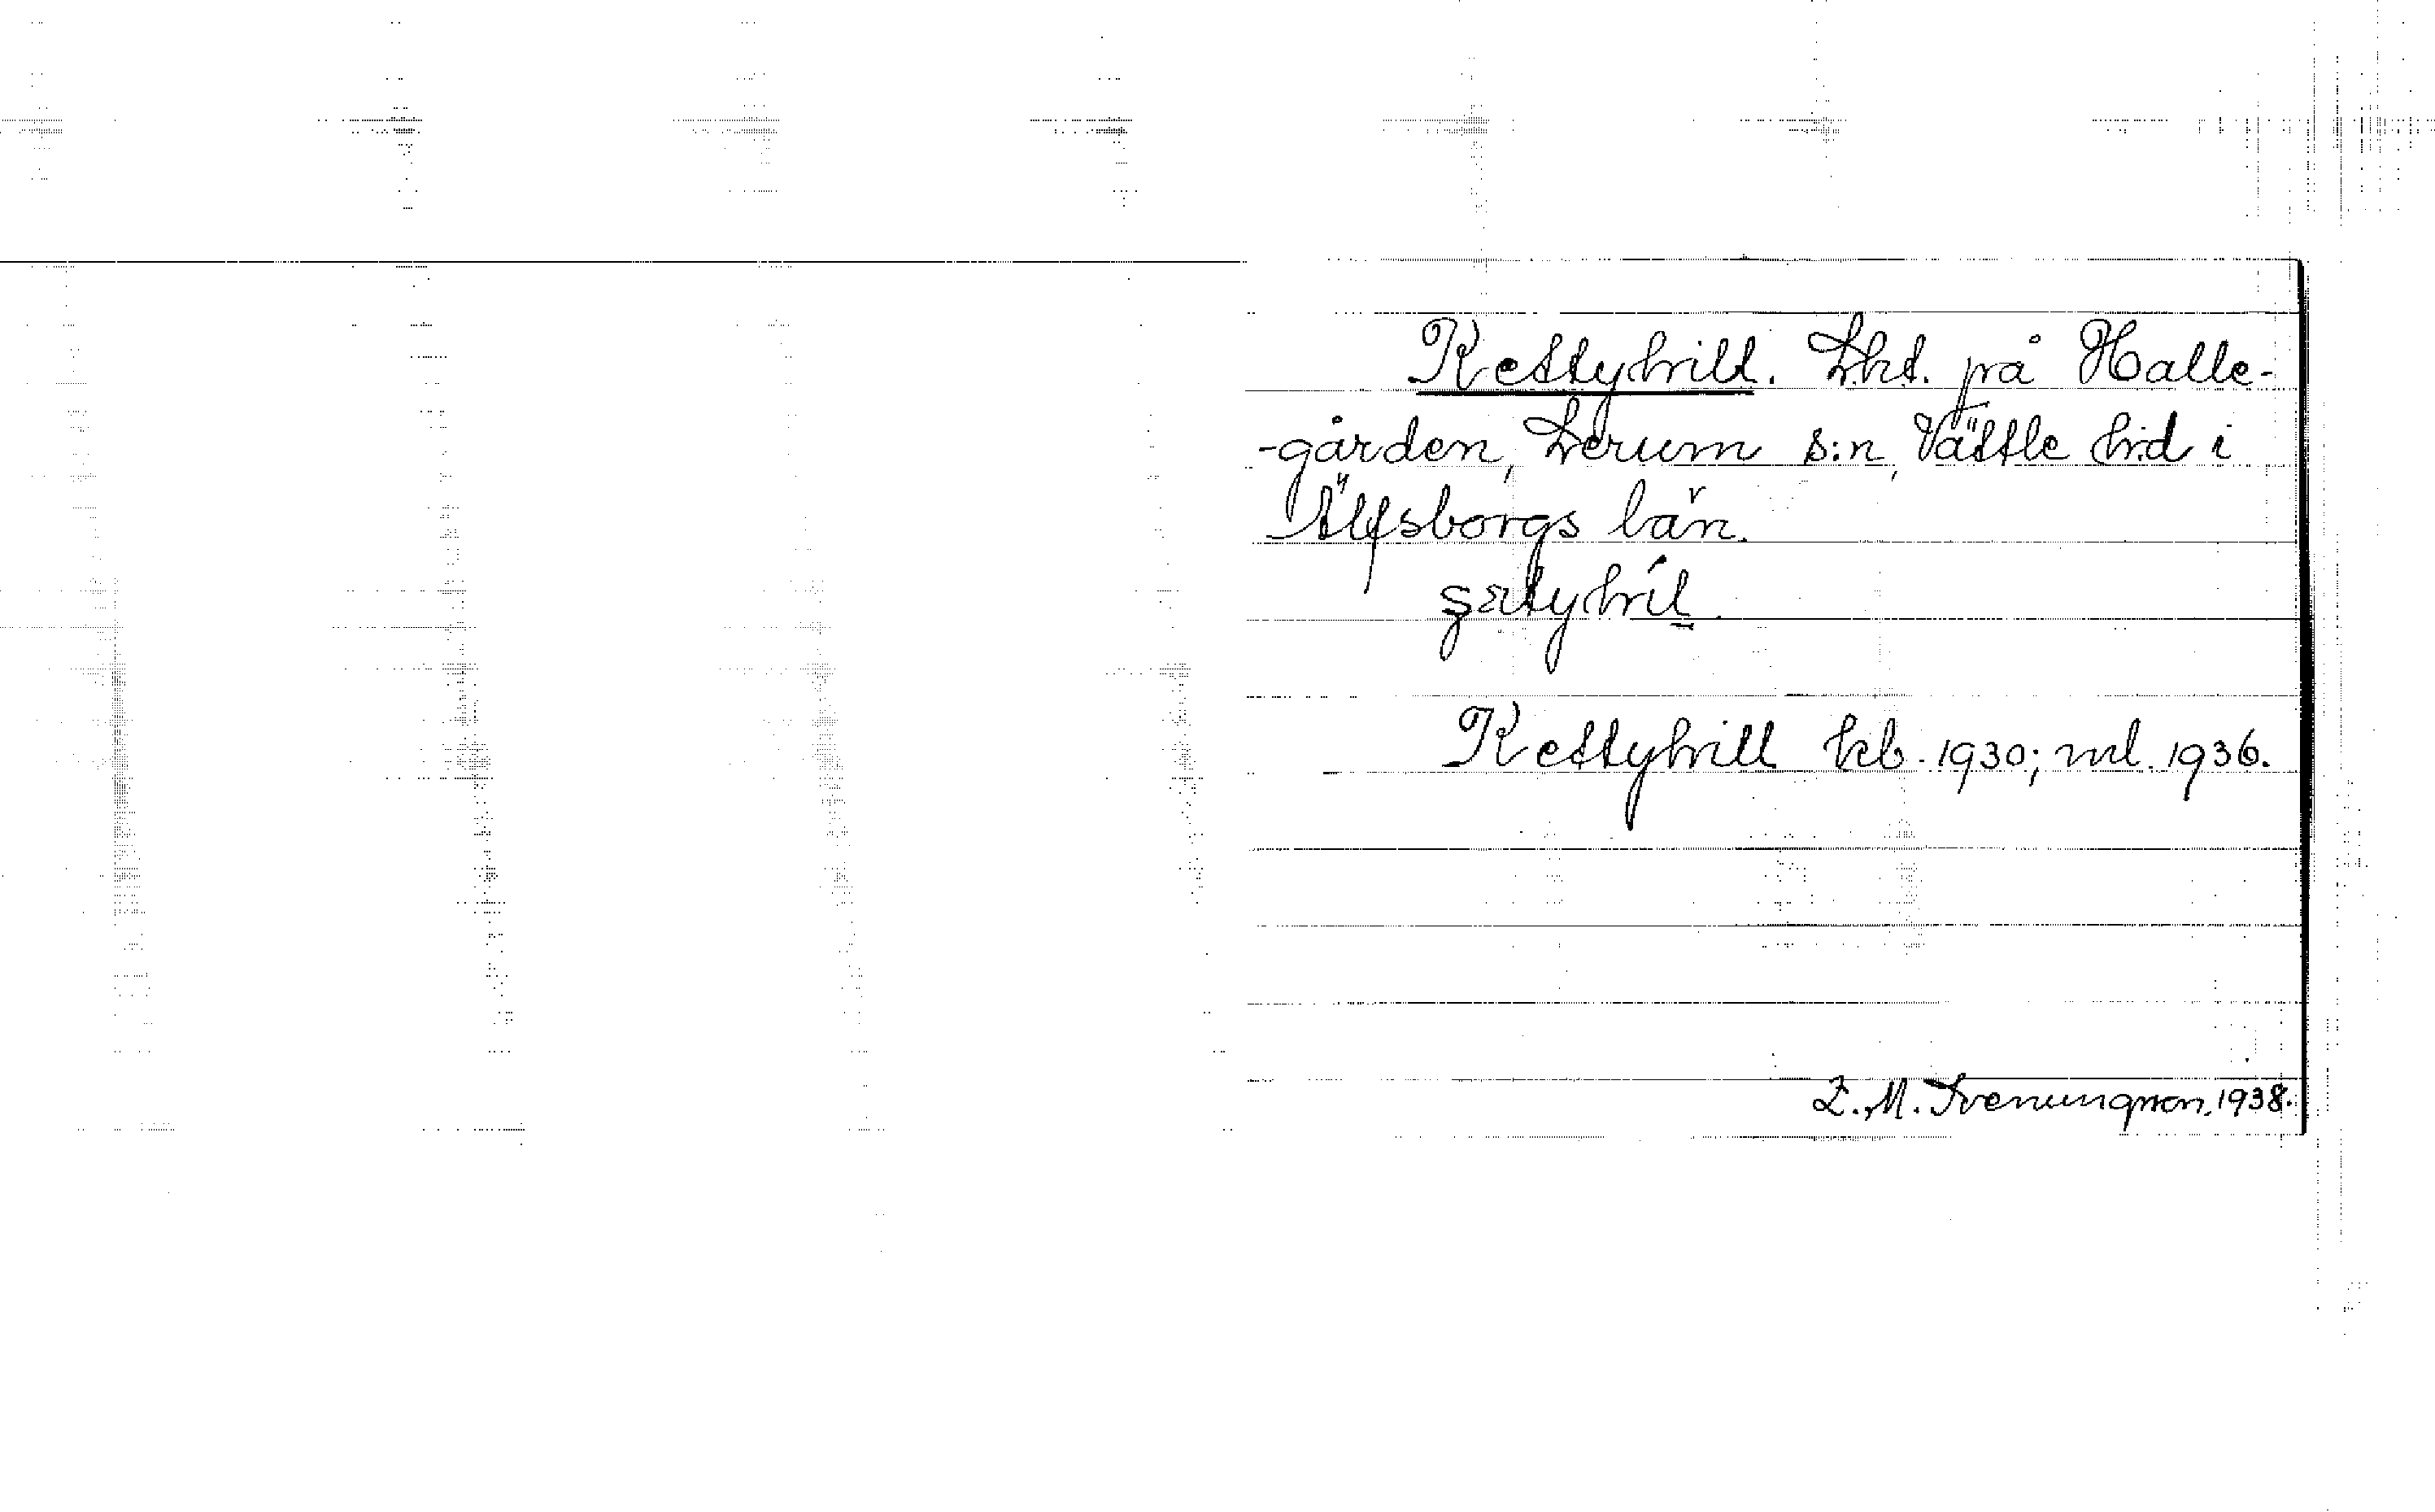 Kettyhill. Lht. på Halle-
-gården, Lerum s:n, Vättle hd i
Älfsborgs län.
Kettyhill kb. 1930; ml. 1936.
Z. M. Svenungsson, 1938.